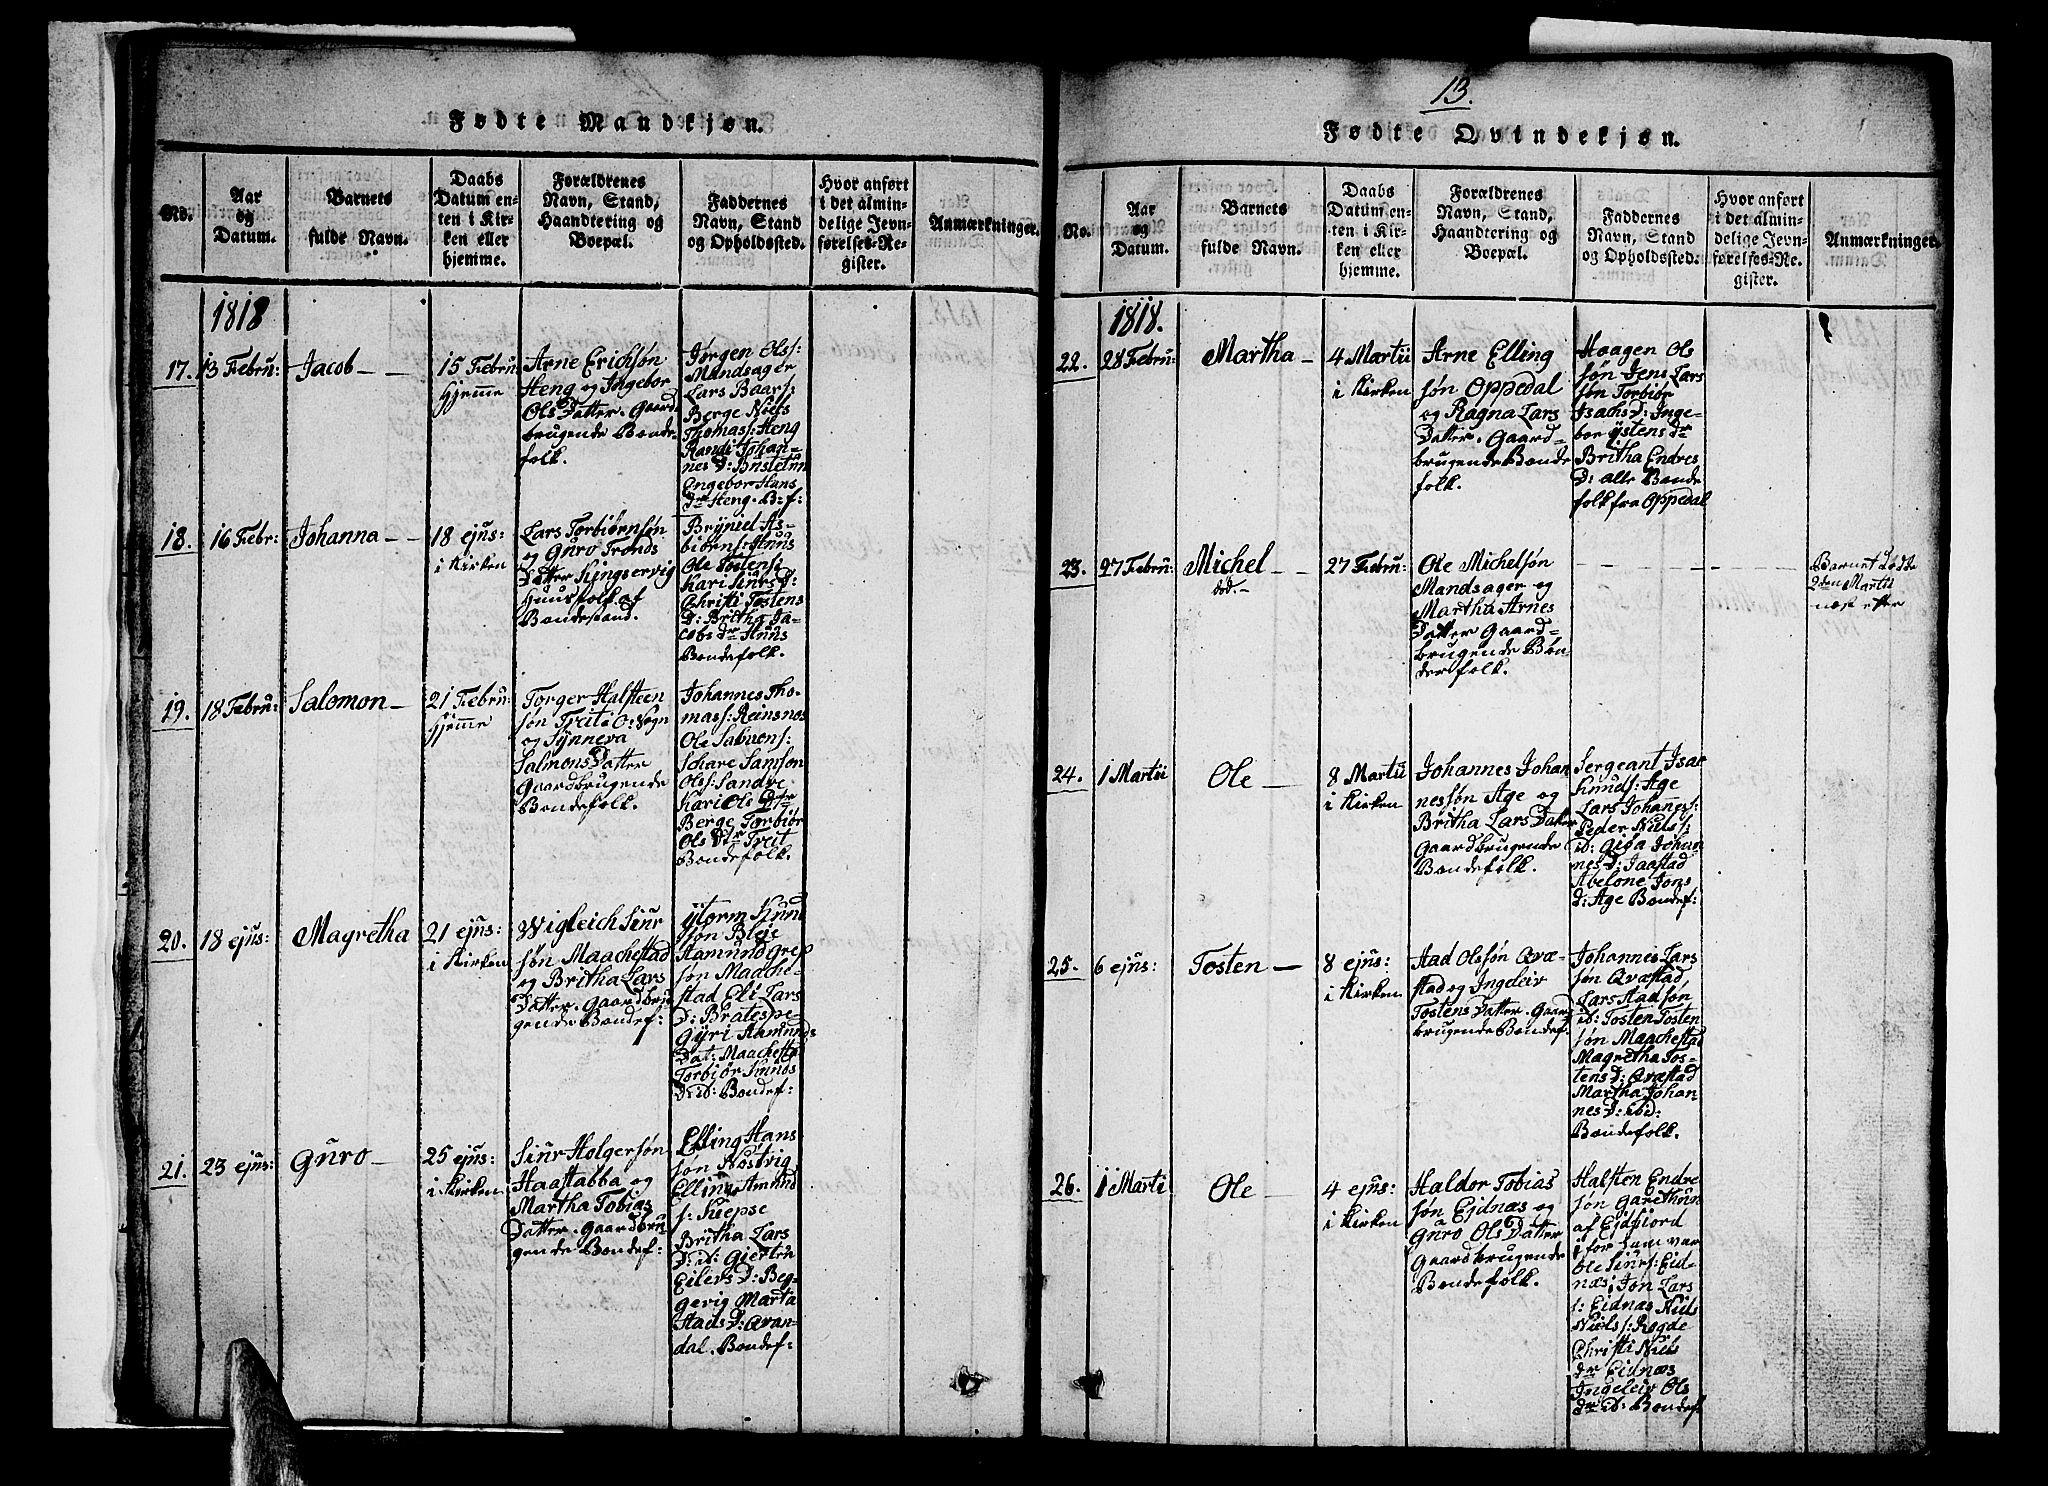 Fødte Mandkjøn.
No.
Aar
og
Datum.
Barnets
fulde Navn.
Daabs
Datum en-
ten i Kir-
ken eller
hjemme.
Forældrenes
Navn, Stand,
Haandtering og
Boepæl.
Faddernes
Navn, Stand
og Opholdssted.
Hvor anført
i det almin-
delige Jevn-
førelses-Re-
gister.
Anmærkninger.
1818
17.
13 Febru:
Jacob
15 Febru
hjemme
Arne Erichsøn
Heng og Ingebor
Ols Datter. Gaard
brugende Bonde
folk.
Jørgen Ols:
Mandsager
Lars Baars:
Berge Niels
Thomas: Heng
Randi Johan-
nes D:
Ingebor Hans
dr Heng. B: f:
18.
16 Febr:
Johanna
18 ejus:
i Kirken
Lars Torbiørnsøn
og Guro Tronds
Datter Kingservig
Huusfolk af
Bondestand.
Bryniel As-
biørns: Huus
Ole Tostens:
Kari Siurs D:
Christi Tostens
D: Britha Ja-
cobs dr Huus
Bondefolk.
19.
18 Febru:
Salomon
21 Febru:
hjemme
Torger Halsteen
søn Treit
og Synneva
Salmons Datter
Gaardbrugende
Bondefolk.
Johannes Tho-
mas: Reinsnos
Ole
Schare Samson
Ols: Sandre
Kari Ols Dtr
Berge Torbiør
Ols Dtr Treit
Bondefolk.
20.
18 ejus:
Magretha
21 ejus:
i Kirken
Wigleich Siur
søn Maachestad
og Britha Lars
Datter. Gaardbru
gende Bondef:
Ystorm Knud
søn Bleje
Aamund
søn Maache-
stad Eli Lars
D:
Gyri Aamunds
Dat: Maachestd
Torbiør Knuds
D: ib: Bondef:
21.
23 ejus:
Guro
25 ejus:
i Kirken
Siur Holgersøn
Haastabba og
Martha Tobias
Datter. Gaardbru
gende Bondef:
Elling Hans
søn
Elling Amund
s:
Britha Lars
D: ib: Giertru
Eilers D: Beg-
gerig Marta
Stads D: Qvan-
dal. Bondef:
13.
Fødte Qvindekjøn.
No.
Aar
og
Datum.
Barnets
fulde Navn.
Daabs
Datum en-
ten i Kir-
ken eller
hjemme.
Forældrenes
Navn, Stand,
Haandtering og
Boepæl.
Faddernes
Navn, Stand
og Opholdssted.
Hvor anført
i det almin-
delige Jevn-
førelses-Re-
gister.
Anmærkninger.
1818.
22.
28 Febru:
Martha
4 Martii
i Kirken
Arne Elling
søn Oppedal
og Ragna Lars
Datter. Gaard-
brugende Bonde
folk.
Haagen Ols
søn Jens Lars
søn Torbiør
Isachs D: Inge-
bor Ystens dr
Britha Endres
D: alle Bonde
folk fra Oppedal
23.
27 Febru:
Michel
død.
27 Febru:
Ole Michelsøn
Mandsager og
Martha Arnes
Datter Gaard-
brugende Bon-
derfolk.
Barnet døde
2den Martii
næst efter
24.
1 Martii
Ole
8 Martii
i Kirken
Johannes Johan
nessøn Age og
Britha Lars Datter
Gaardbrugende
Bondefolk.
Sergeant Isac
Knuds: Age
Lars Johanes:
Peder Niels:
ib: Giga Johan
nes D: Jaastad
Abelone Jons
d: Age Bondef:
25.
6 ejus:
Tosten
8 ejus:
i Kirken
Stad Olssøn Qvæ-
stad og Ingeleiv
Tostens Datter. Gaard
brugende Bondef.
Johannes Lars
søn Qvæstad
Lars Stadsøn
ib: Tosten Tosten
søn Maachestad
Magretha Tos-
tens D: Qvæstad
Martha Johan
nes D: ibid:
Bondefolk.
26.
11 Marti
Ole
4 ejus:
i Kirken
Haldor Tobias
søn Ejdnæs og
Guro Ols Datter
Gaardbrugende
Bondefolk.
Halsten Endre
søn Garethun
af Eidfiord
i for ham var
Ole Siurs: Eid-
næs; Jon Lars
s: Eidnæs Niels
Niels: Rogde
Christi Niels
dr Eidnæs
Ingeleiv Ols
dr ib: Bondef.